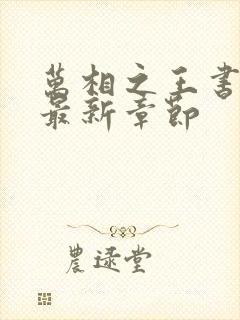 萬相之王書
最新章節
農逯堂